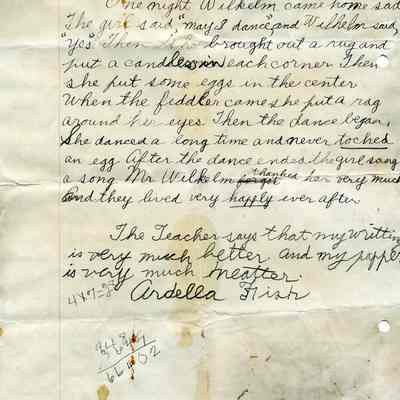 One night Wilhelm came home sad
The girl said, "may I dance", and Wilhelm said,
"Yes". Then brought out a rug and
put a candles in each corner Then
she put some eggs in the center
When the fiddler came she put a rag
around her eyes. Then the dance began.
She danced a long time and never toched
an egg After the dance endes the girl sang
a song Mr Wilhelm thanked her very much
And they lived very happly ever after
The Teacher says that my writting
is very much better And my papper
is very much neatter.
Ardella Fish